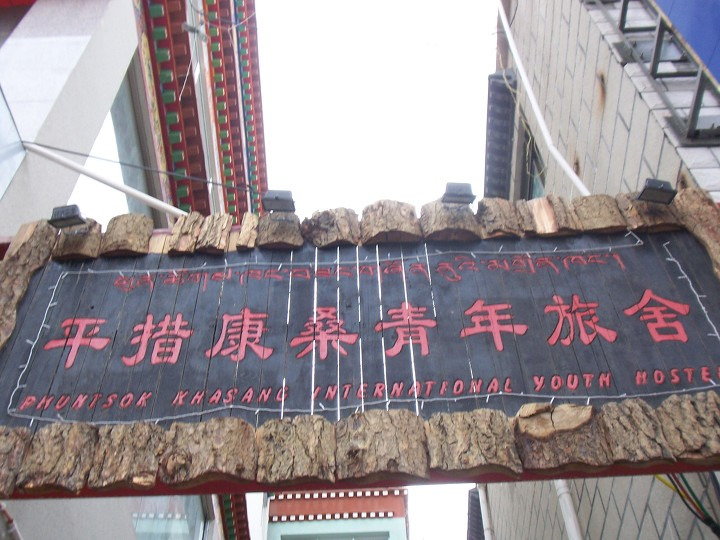 平措康桑青年旅舍
PHUNTSOK KHASANG INTERNATIONAL YOUTH HOSTEL